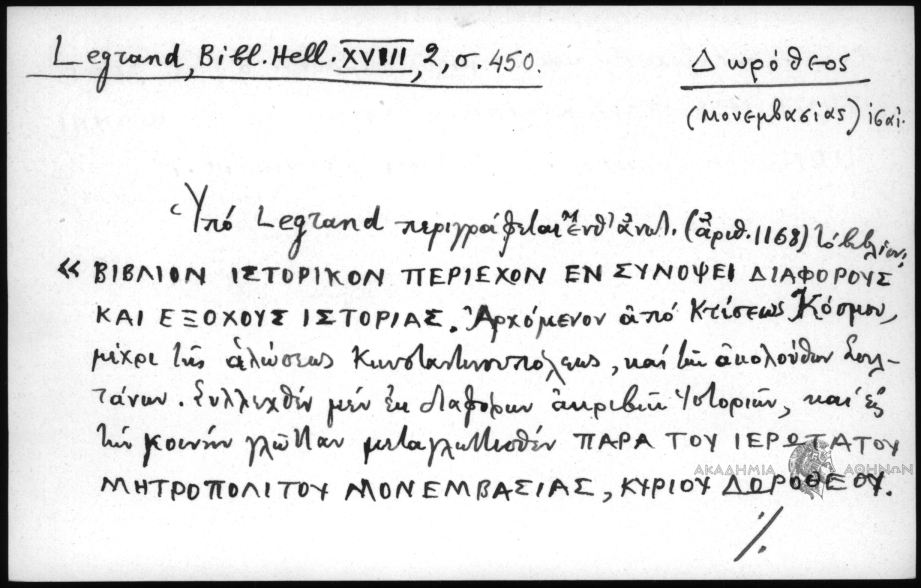 Legrand, Bibl. Hell. XVIII, 2, σ. 450.
Δωρόθεος
(Μονεμβασίας)
Ὑπό Legrand περιγράφεται ἐνθ' ἀνωτ. (ἀριθ. 1168) τό βιβλίον:
« ΒΙΒΛΙΟΝ ΙΣΤΟΡΙΚΟΝ ΠΕΡΙΕΧΟΝ ΕΝ ΣΥΝΟΨΕΙ ΔΙΑΦΟΡΟΥΣ
ΚΑΙ ΕΞΟΧΟΥΣ ΙΣΤΟΡΙΑΣ. Ἀρχόμενον ἀπό Κτίσεως Κόσμου,
μέχρι τῆς ἁλώσεως Κωνσταντινουπόλεως, καί τῶν ἀκολούθων Σουλ-
τάνων. Συλλεχθέν μέν ἐκ διαφόρων ἀκριβῶν Ἱστοριῶν, καί εἰς
τήν κοινήν γλῶτταν μεταγλωττισθέν ΠΑΡΑ ΤΟΥ ΙΕΡΩΤΑΤΟΥ
ΑΚΑΔΗΜΙΑ ΑΘΗΝΩΝ
ΜΗΤΡΟΠΟΛΙΤΟΥ ΜΟΝΕΜΒΑΣΙΑΣ, ΚΥΡΙΟΥ ΔΩΡΟΘΕΟΥ.
./.